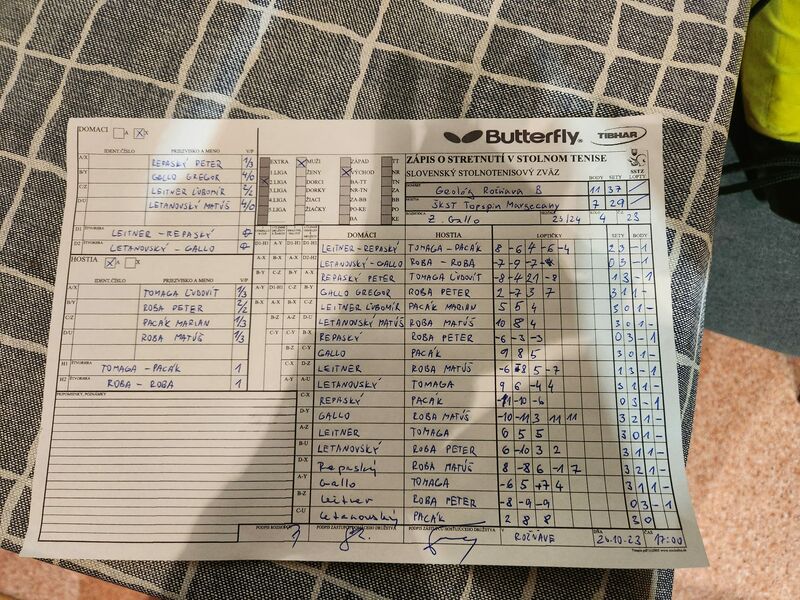 Butterfly
TIBHAR
DOMÁCI A X
IDENT. ČÍSLO PRIEZVISKO A MENO V/P
A/X REPASKÝ PETER 1/3
B/Y GALLO GREGOR 4/0
C/Z LEITNER ĽUBOMÍR 2/2
D/U LETANOVSKÝ MATÚŠ 4/0
D1 ŠTVORHRA LEITNER - REPASKÝ
D2 ŠTVORHRA LETANOVSKÝ - GALLO
HOSTIA A X
IDENT. ČÍSLO PRIEZVISKO A MENO V/P
A/X TOMAGA ĽUDOVÍT 1/3
B/Y ROBA PETER 2/2
C/Z PACÁK MARIAN 1/3
D/U ROBA MATÚŠ 1/3
H1 ŠTVORHRA TOMAGA - PACÁK 1
H2 ŠTVORHRA ROBA - ROBA 1
PRIPOMIENKY, POZNÁMKY
EXTRA MUŽI ZÁPAD TT
1.LIGA ŽENY VÝCHOD NR
2.LIGA DORCI BA-TT ZA
3.LIGA DORKY NR-TN BB
4.LIGA ŽIACI ZA-BB PO
5.LIGA ŽIAČKY PO-KE KE
BA
ZÁPIS O STRETNUTÍ V STOLNOM TENISE
SLOVENSKÝ STOLNOTENISOVÝ ZVÄZ
BODY SETY LOPTY SSTZ
DOMÁCI Geológ Rožňava B 11 37
HOSTIA ŠKST Topspin Margecany 7 29
Z. Gallo 23/24 KOLO 4 Č. 23
DOMÁCI HOSTIA LOPTIČKY SETY BODY
LEITNER-REPASKÝ TOMAGA-PACÁK 8 -6 4 -6 -4 2 3 - 1
LETANOVSKÝ-GALLO ROBA - ROBA -7 -9 -7 0 3 - 1
REPASKÝ PETER TOMAGA ĽUDOVÍT -8 -4 21 -8 1 3 - 1
GALLO GREGOR ROBA PETER 2 -7 3 7 3 1 1 -
LEITNER ĽUBOMÍR PACÁK MARIAN 5 5 4 3 0 1 -
LETANOVSKÝ MATÚŠ ROBA MATÚŠ 10 8 4 3 0 1 -
REPASKÝ ROBA PETER -6 -3 -3 0 3 - 1
GALLO PACÁK 9 8 5 3 0 1 -
LEITNER ROBA MATÚŠ -6 -8 5 -7 1 3 - 1
LETANOVSKÝ TOMAGA 9 6 -4 4 3 1 1 -
REPASKÝ PACÁK -11 -10 -6 0 3 - 1
GALLO ROBA MATÚŠ -10 -11 3 11 11 3 2 1 -
LEITNER TOMAGA 6 5 5 3 0 1 -
LETANOVSKÝ ROBA PETER 6 -10 3 2 3 1 1 -
Repaský ROBA MATÚŠ 8 -8 6 -1 7 3 2 1 -
Gallo TOMAGA -6 5 7 4 3 1 1 -
Leitner ROBA PETER -8 -9 -9 0 3 - 1
Letanovský PACÁK 2 8 8 3 0
PODPIS ZÁSTUPCU DOMÁCEHO DRUŽSTVA
PODPIS ZÁSTUPCU HOSŤUJÚCEHO DRUŽSTVA
V ROŽŇAVE DŇA 26.10.23 ČAS 17:00